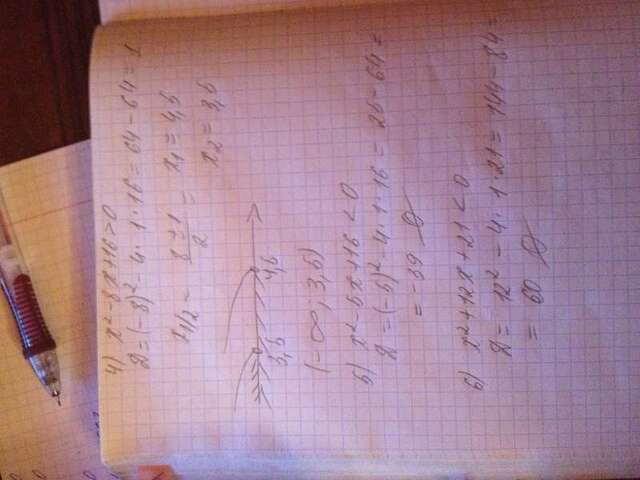 4) x² - 8x + 16 > 0
D = (-8)² - 4 · 1 · 16 = 64 - 64 = 1
x1/2 = (8 ± 1)/2 = x₁ = 4,5
x₂ = 3,5
3,5 4,5
(-∞; 3,5)
5) x² - 5x + 16 < 0
D = (-5)² - 4 · 1 · 16 = 25 - 64 =
= -39 ∅
6) x² + 12x + 21 < 0
D = 12² - 4 · 1 · 21 = 144 - 84 =
= 60 ∅